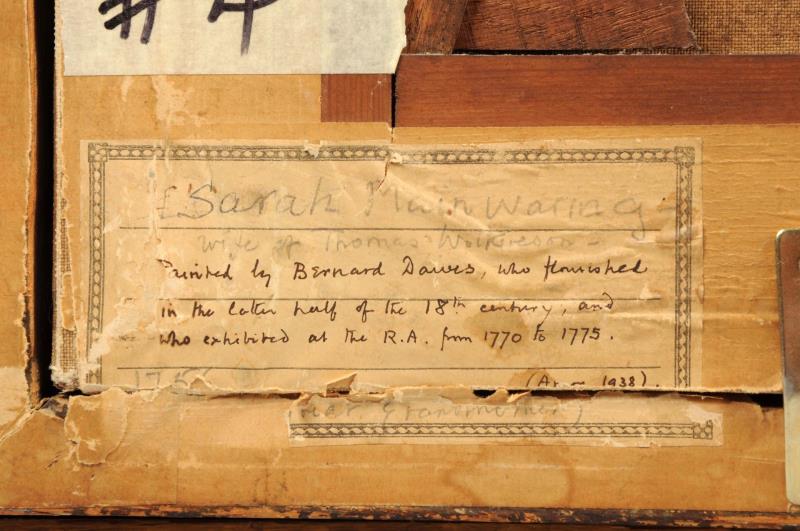 #4
Sarah Mainwaring -
wife of Thomas
Painted by Bernard Dawes, who flourished
in the latter half of the 18th century, and
who exhibited at the R.A. from 1770 to 1775.
1938).
Grandmother)